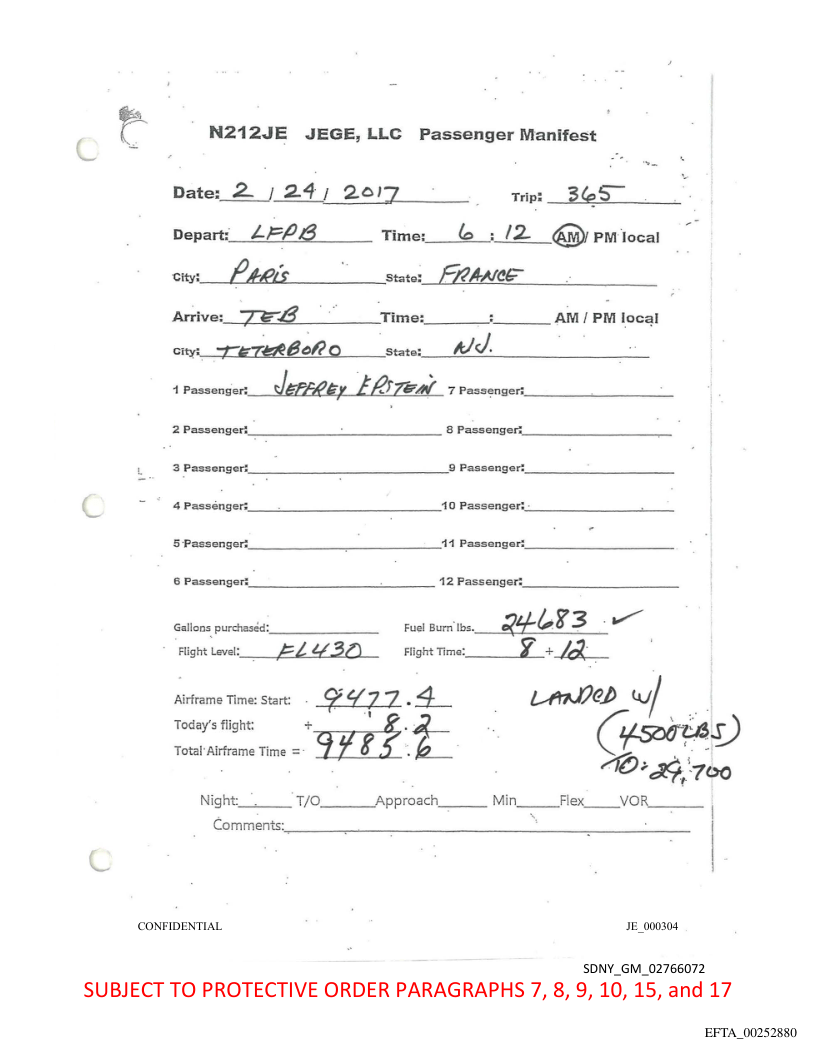 N212JE JEGE, LLC Passenger Manifest
Date: 2 / 24 / 2017 Trip: 365
Depart: LFPB Time: 6 : 12 AM / PM local
City: PARIS State: FRANCE
Arrive: TEB Time: : AM / PM local
City: TETERBORO State: NJ.
1 Passenger: JEFFREY EPSTEIN 7 Passenger:
2 Passenger: 8 Passenger:
3 Passenger: 9 Passenger:
4 Passenger: 10 Passenger:
5 Passenger: 11 Passenger:
6 Passenger: 12 Passenger:
Gallons purchased: Fuel Burn lbs. 24683 ✓
Flight Level: FL430 Flight Time: 8 + 12
Airframe Time: Start: 9477.4 LANDED W/
Today's flight: + 8.2 (4500 LBS)
Total Airframe Time = 9485.6 TO: 29,700
Night: T/O Approach Min Flex VOR
Comments:
CONFIDENTIAL JE_000304
SDNY_GM_02766072
SUBJECT TO PROTECTIVE ORDER PARAGRAPHS 7, 8, 9, 10, 15, and 17
EFTA_00252880